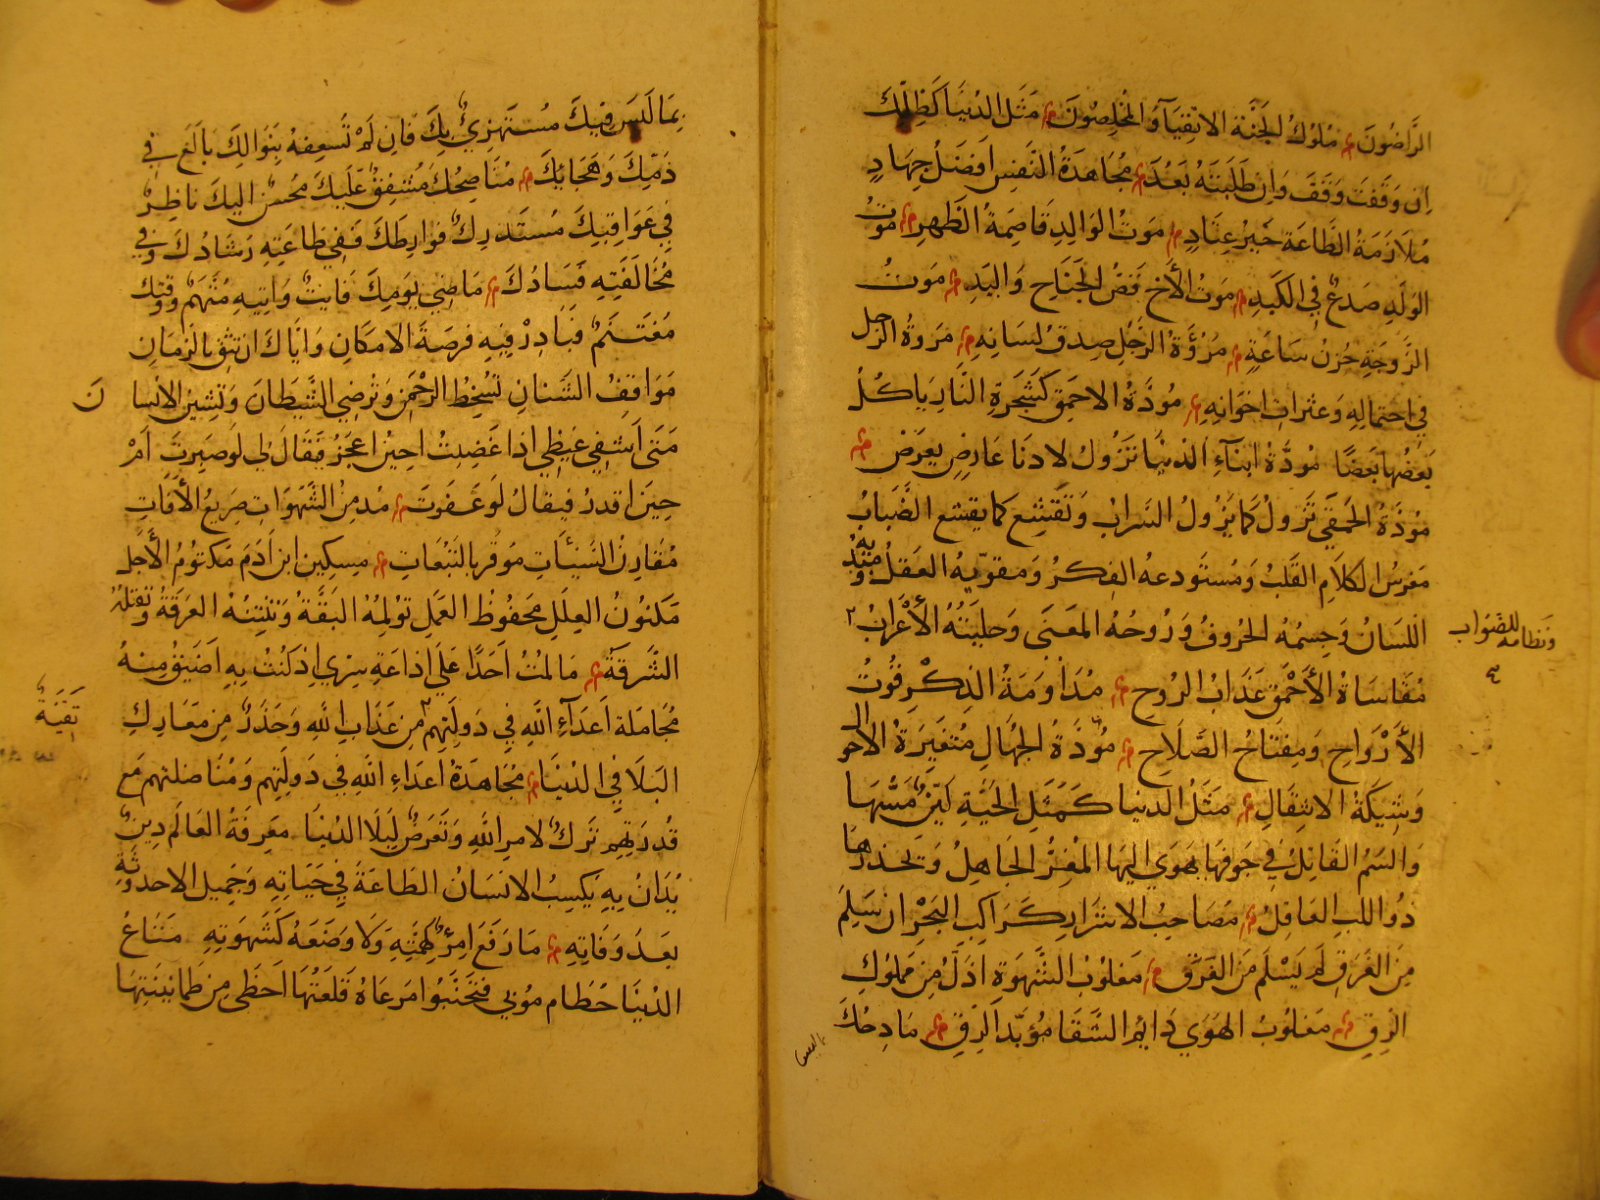 الرَّاضُونَ مُلُوكُ الجَنَّة الاتقِيَآءُ وَالمُخلِصُونَ مَثَل الدُنيَا كَظِلِّكَ
اِن وَقَفتَ وَقَفَ وَاِن طَلَبتَهُ بَعُدَ مُجَاهَدَةُ النَفسِ اَفضَلُ جِهَادٍ
مُلَازَمَةُ الطَّاعَة خَيرُ عِتَادٍ مَوتُ الوَالِدِ قَاصِمَةُ الظَهرِ مَوتُ
الوَلَدِ صَدعٌ فِي الكَبِدِ مَوتُ الأَخ قَصُّ الجَنَاحِ وَاليَدِ مَوتُ
الزَّوجَةِ حُزنُ سَاعَةٍ مَرُؤَةُ الرَجُلِ صِدقُ لِسَانِهِ مَروةُ الرَجل
فِي احتِمَالِهِ وَعثراتِ اخوَانِهِ مُودَّةُ الاحمَقِ كَشَجَرةِ النَّارِ يَاكُلُ
بَعضُهَا بَعضًا مُودَّةُ ابنَآءِ الدُنيَا تَزُولُ لادنَا عَارِضٍ يعرَضُ
مُودَّةُ الحَمقَي تَزولُ كمَا يَزُولُ السَراب وَتَقشَع كمَا يقشع الضَّبَابُ
مَغرسُ الكَلَامِ القَلبُ وَمُستَودعهُ الفِكرُ وَمقوّيهِ العَقلُ وَمُبديهِ
اللِسَانُ وَجِسمُهُ الحرُوفُ وَرُوحُهُ المَعنَى وَحليَتُهُ الأَعْرَابُ ٢
وَنظامه للصَّوَاب
مُقَاسَاةُ الأَحْمَقِ عَذَابُ الرُوحِ مُدَاوَمَةُ الذِكْرِ قُوتُ
الأَرْوَاحِ وَمِفتَاحُ الصَّلَاحِ مُودَّةُ الجُهَالِ مُتغيرَةُ الأَحوالِ
وَشِيكَةُ الانتِقَالِ مَثَلُ الدنيا كَمَثَلِ الحَيَّةِ لَيِّنٌ مَسُّهَا
وَالسَمُ القَاتِلُ فِي جَوفهَا يهَوَي اليهَا المُغتَرُّ الجَاهِلُ وَيَحذَرُهَا
ذُو اللُبِ العَاقِلُ مُصَاحِبُ الاشرَارِ كَرَاكِبِ البَحْرِ ان سَلِمَ
مِنَ الغَرَقِ لَم يَسْلَم مِنَ الفَرَقِ مَغلُوبُ الشَّهوَةِ اذَلُّ مِن مَملُوكِ
الرِقِ مَغلوبُ الهَوَي دَايمُ الشَّقَا مُؤبَّدُ الرِقِ مَادِحُكَ
بِمَا لَيسَ فِيكَ مُستَهزِيٌ بِكَ فَاِن لَمْ تُسعِفهُ بِنَوَالِكَ بَالَغَ فِي
ذَمِّكَ وَهَجَائِكَ مُنَاصِحُكَ مُشفِقٌ عَلَيكَ مُحسِنٌ اليكَ نَاظِرٌ
فِي عَوَاقِبكَ مُستَدرِكٌ فَوارِطَكَ فَفِي طَاعَتِهِ رَشَادُكَ وَفِي
مُخَالَفَتِهِ فَسَادُكَ مَاضِي يَومِكَ فَايتٌ وَاتِيهِ مُتَّهَمٌ وَوَقتُكَ
مُغتَنَمٌ فَبَادِرْ فِيهِ فُرصَةَ الامكَانِ وَايَّاكَ ان تثق بالزمَانِ
مَوَاقِفُ الشَّنَانِ تُسخِطُ الرحْمنَ وَتُرضِي الشَّيطَانَ وَتَشِينُ الانسَانَ
مَتَى اَشفِي غَيظِي اذَا غَضِبتُ احِينَ اعجَزُ فَيقَالَ لِي لَو صَبرتَ اَمْ
حِينَ اقدرُ فيقالُ لو عَفَوتَ مُدمِنُ الشَّهَوَاتِ صَرِيعُ الأَفَاتِ
مُقَارِنُ السَّيِّئَاتِ مَوقُر بالتَبِعَاتِ مِسكِين ابن آدَمَ مَكتُومُ الأَجَلِ
مَكنُونُ العِلَلِ مَحفُوظُ العَمَلِ تولمُهُ البَقَّةُ وَتُنتِنُهُ العَرقَةُ وَتَقتلُهُ
الشَّرقَةُ مَا لمتُ اَحَدًا عَلَي اذاعَةِ سِرِي اِذ كنتُ بِهِ اَضيَقَ مِنهُ
مُجَامَلة اَعدَآءِ اللهِ فِي دَولَتِهِم ٢ مِن عَذَابِ اللهِ وَحَذَرٌ مِن مَعَارِكِ
تَقِيَةٌ
البَلَا فِي الدُنيَا مُجَاهَدَةُ اعدَاءِ اللهِ فِي دَولَتِهِم وَمُنَاضلتهم مَع
قُدرَتِهِم تَركٌ لامرِ اللهِ وَتَعَرضٌ لِبَلَاءِ الدُنيَا مَعرِفَةُ العَالَم دِينٌ
يُدَانُ بِهِ يَكسِبُ الانسَانُ الطَاعَةَ فِي حَيَاتِهِ وَجَمِيل الاحدوثَةِ
بَعدَ وَفَاتِهِ مَا رَفَعَ امرَءً كَهِمَّتِهِ وَلَا وَضَعَهُ كَشَهوَتِهِ مَتَاعُ
الدُنيَا حُطَام مُوبِي فَتَجَنَّبُوا مَرعَاهُ قَلعَتُهَا اَحظَى مِن طمَانِينَتِهَا